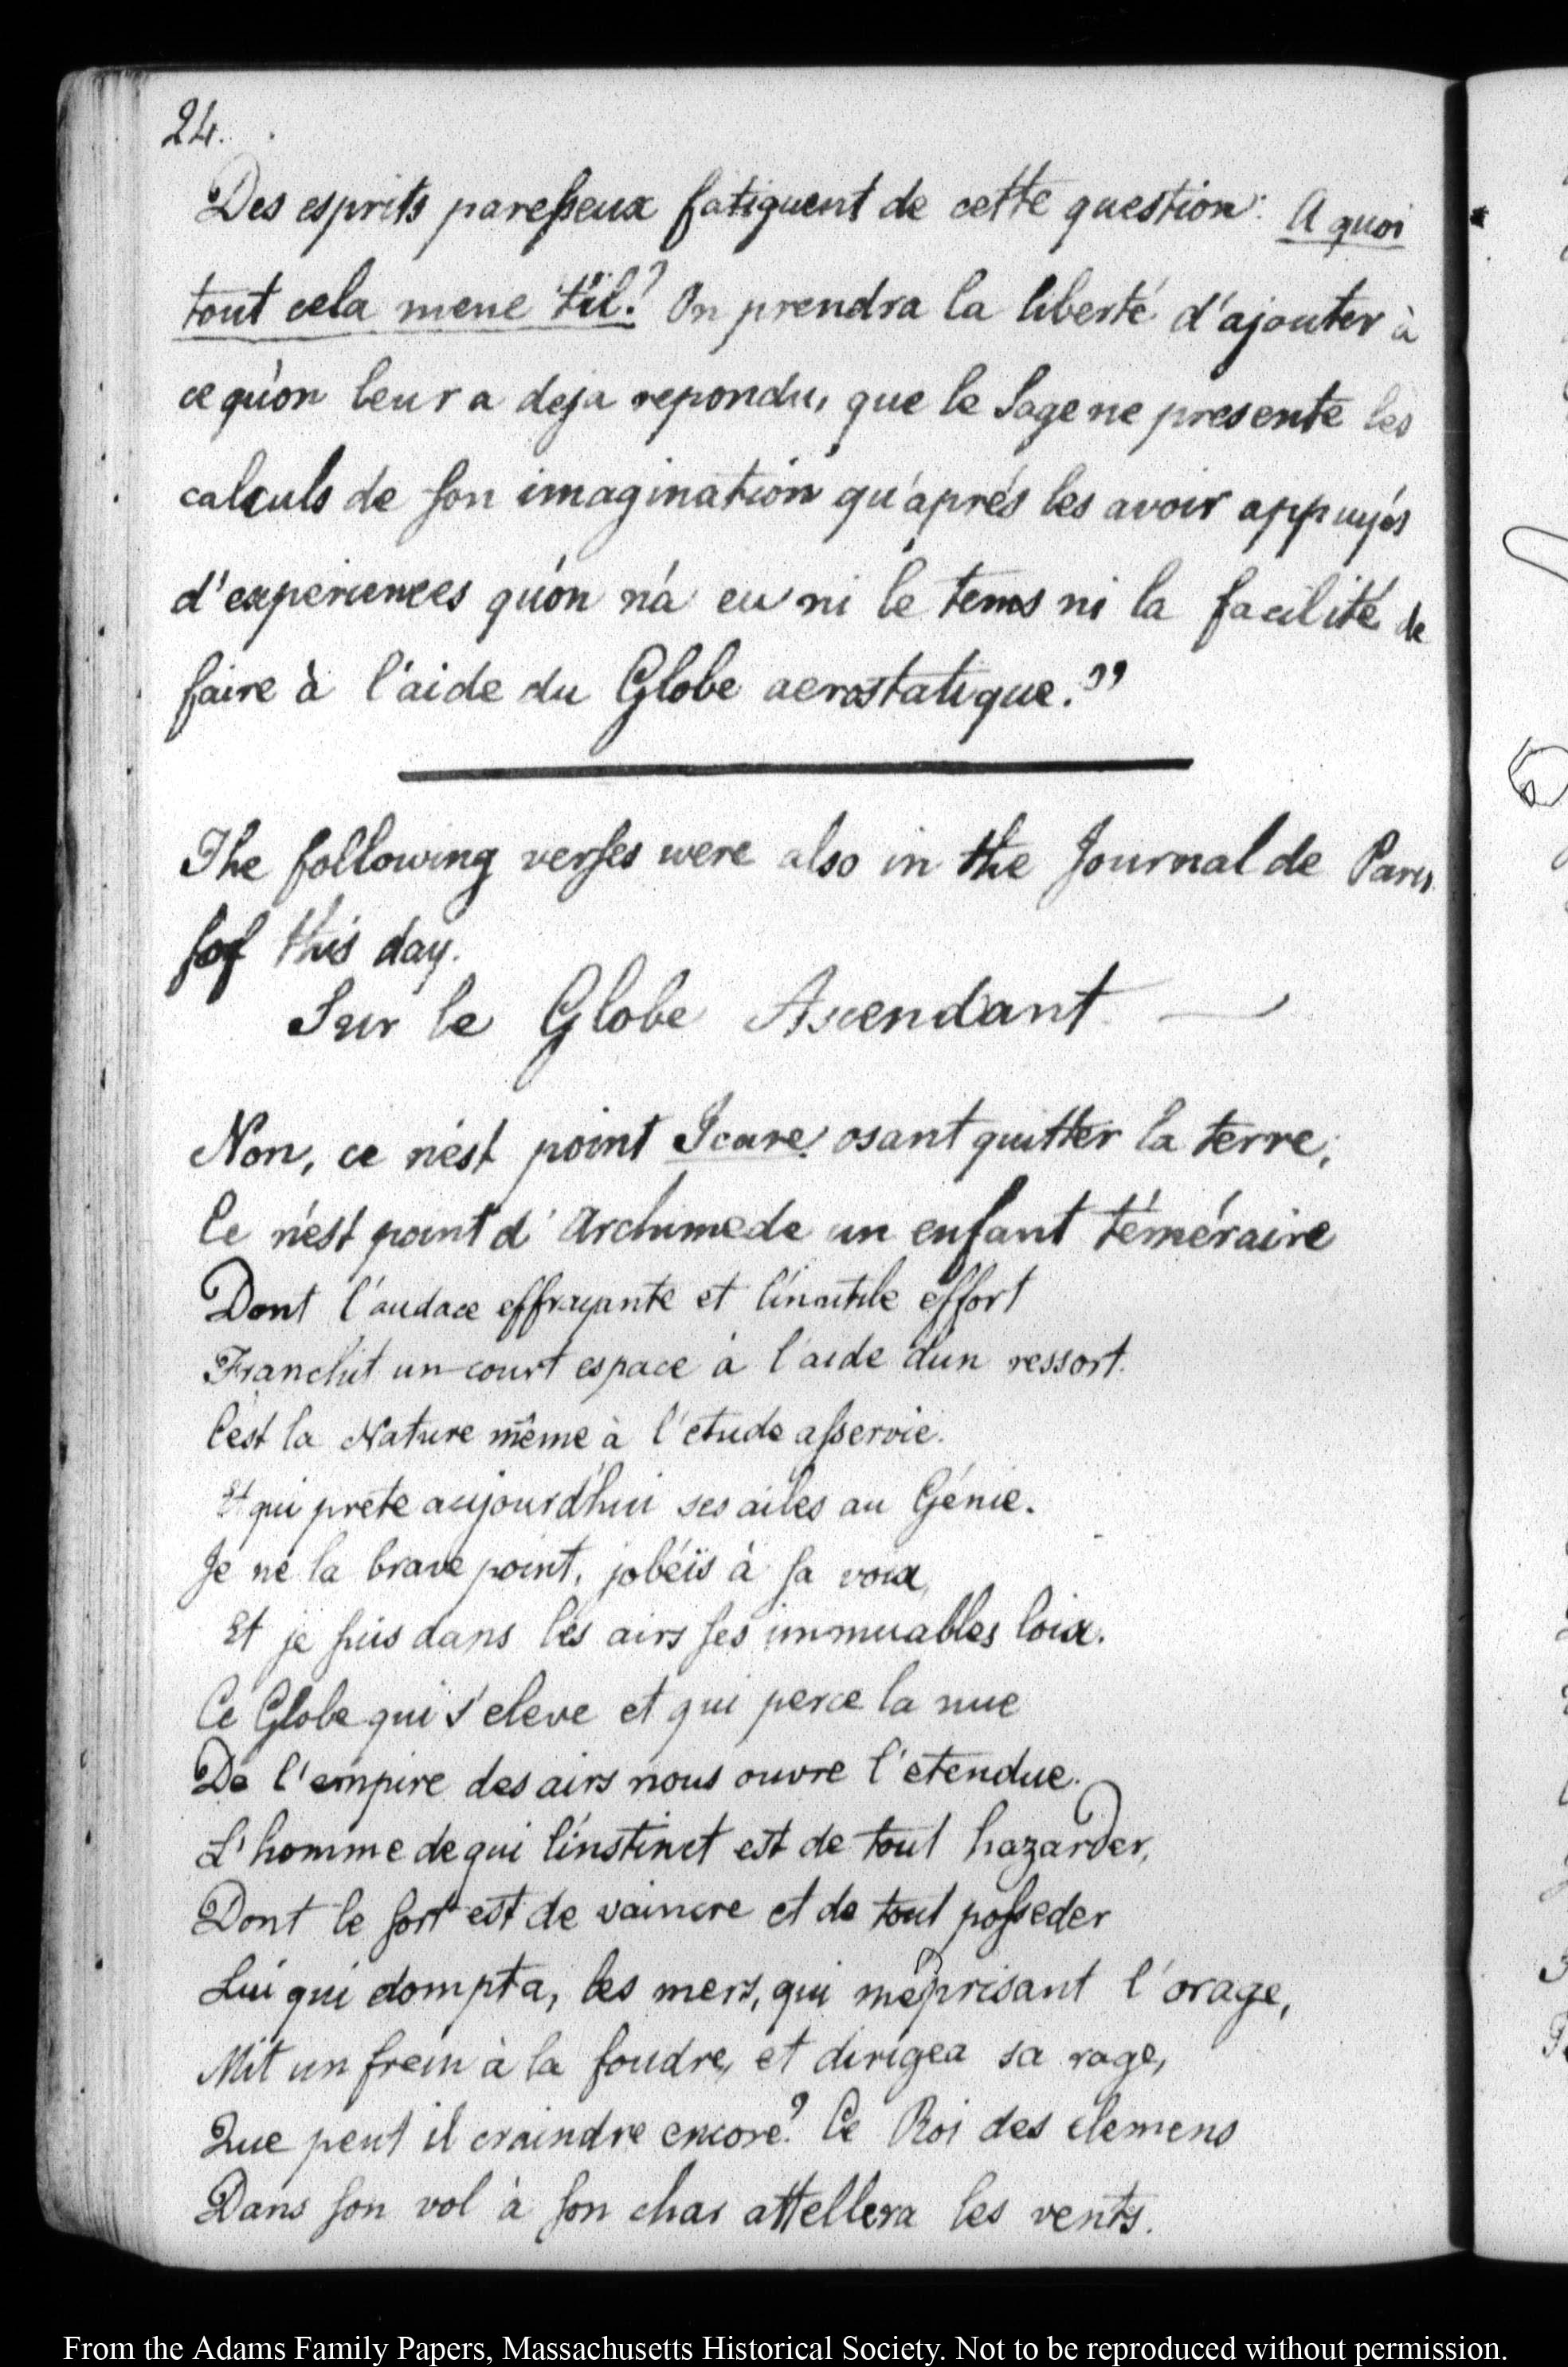 24.
Des esprits paresseux fatiguent de cette question: A quoi
tout cela mene t'il? On prendra la liberté d'ajouter à
ce qu'on leur a deja repondu, que le Sage ne presente les
calculs de son imagination qu'aprés les avoir appuyés
d'experiences qu'on n'a eu ni le tems ni la facilité de
faire à l'aide du Globe aerostatique."
The following verses were also in the Journal de Paris
of this day.
Sur le Globe Ascendant —
Non, ce n'est point Icare, osant quitter la terre,
Ce n'est point d'Archimede un enfant téméraire
Dont l'audace effrayante et l'inutile effort
Franchit un court espace à l'aide d'un ressort.
C'est la Nature même à l'etude asservie.
Et qui prete aujourd'hui ses ailes au Génie.
Je ne la brave point, j'obéïs à sa voix,
Et je suis dans les airs ses immuables loix.
Ce Globe qui s'eleve et qui perce la nue
De l'empire des airs nous ouvre l'etendue.
L'homme de qui l'instinct est de tout hazarder,
Dont le sort est de vaincre et de tout posseder
Lui qui dompta, les mers, qui méprisant l'orage,
Mit un frein à la foudre, et dirigea sa rage,
Que peut il craindre encore? Ce Roi des elemens
Dans son vol à son char attellera les vents.
From the Adams Family Papers, Massachusetts Historical Society. Not to be reproduced without permission.